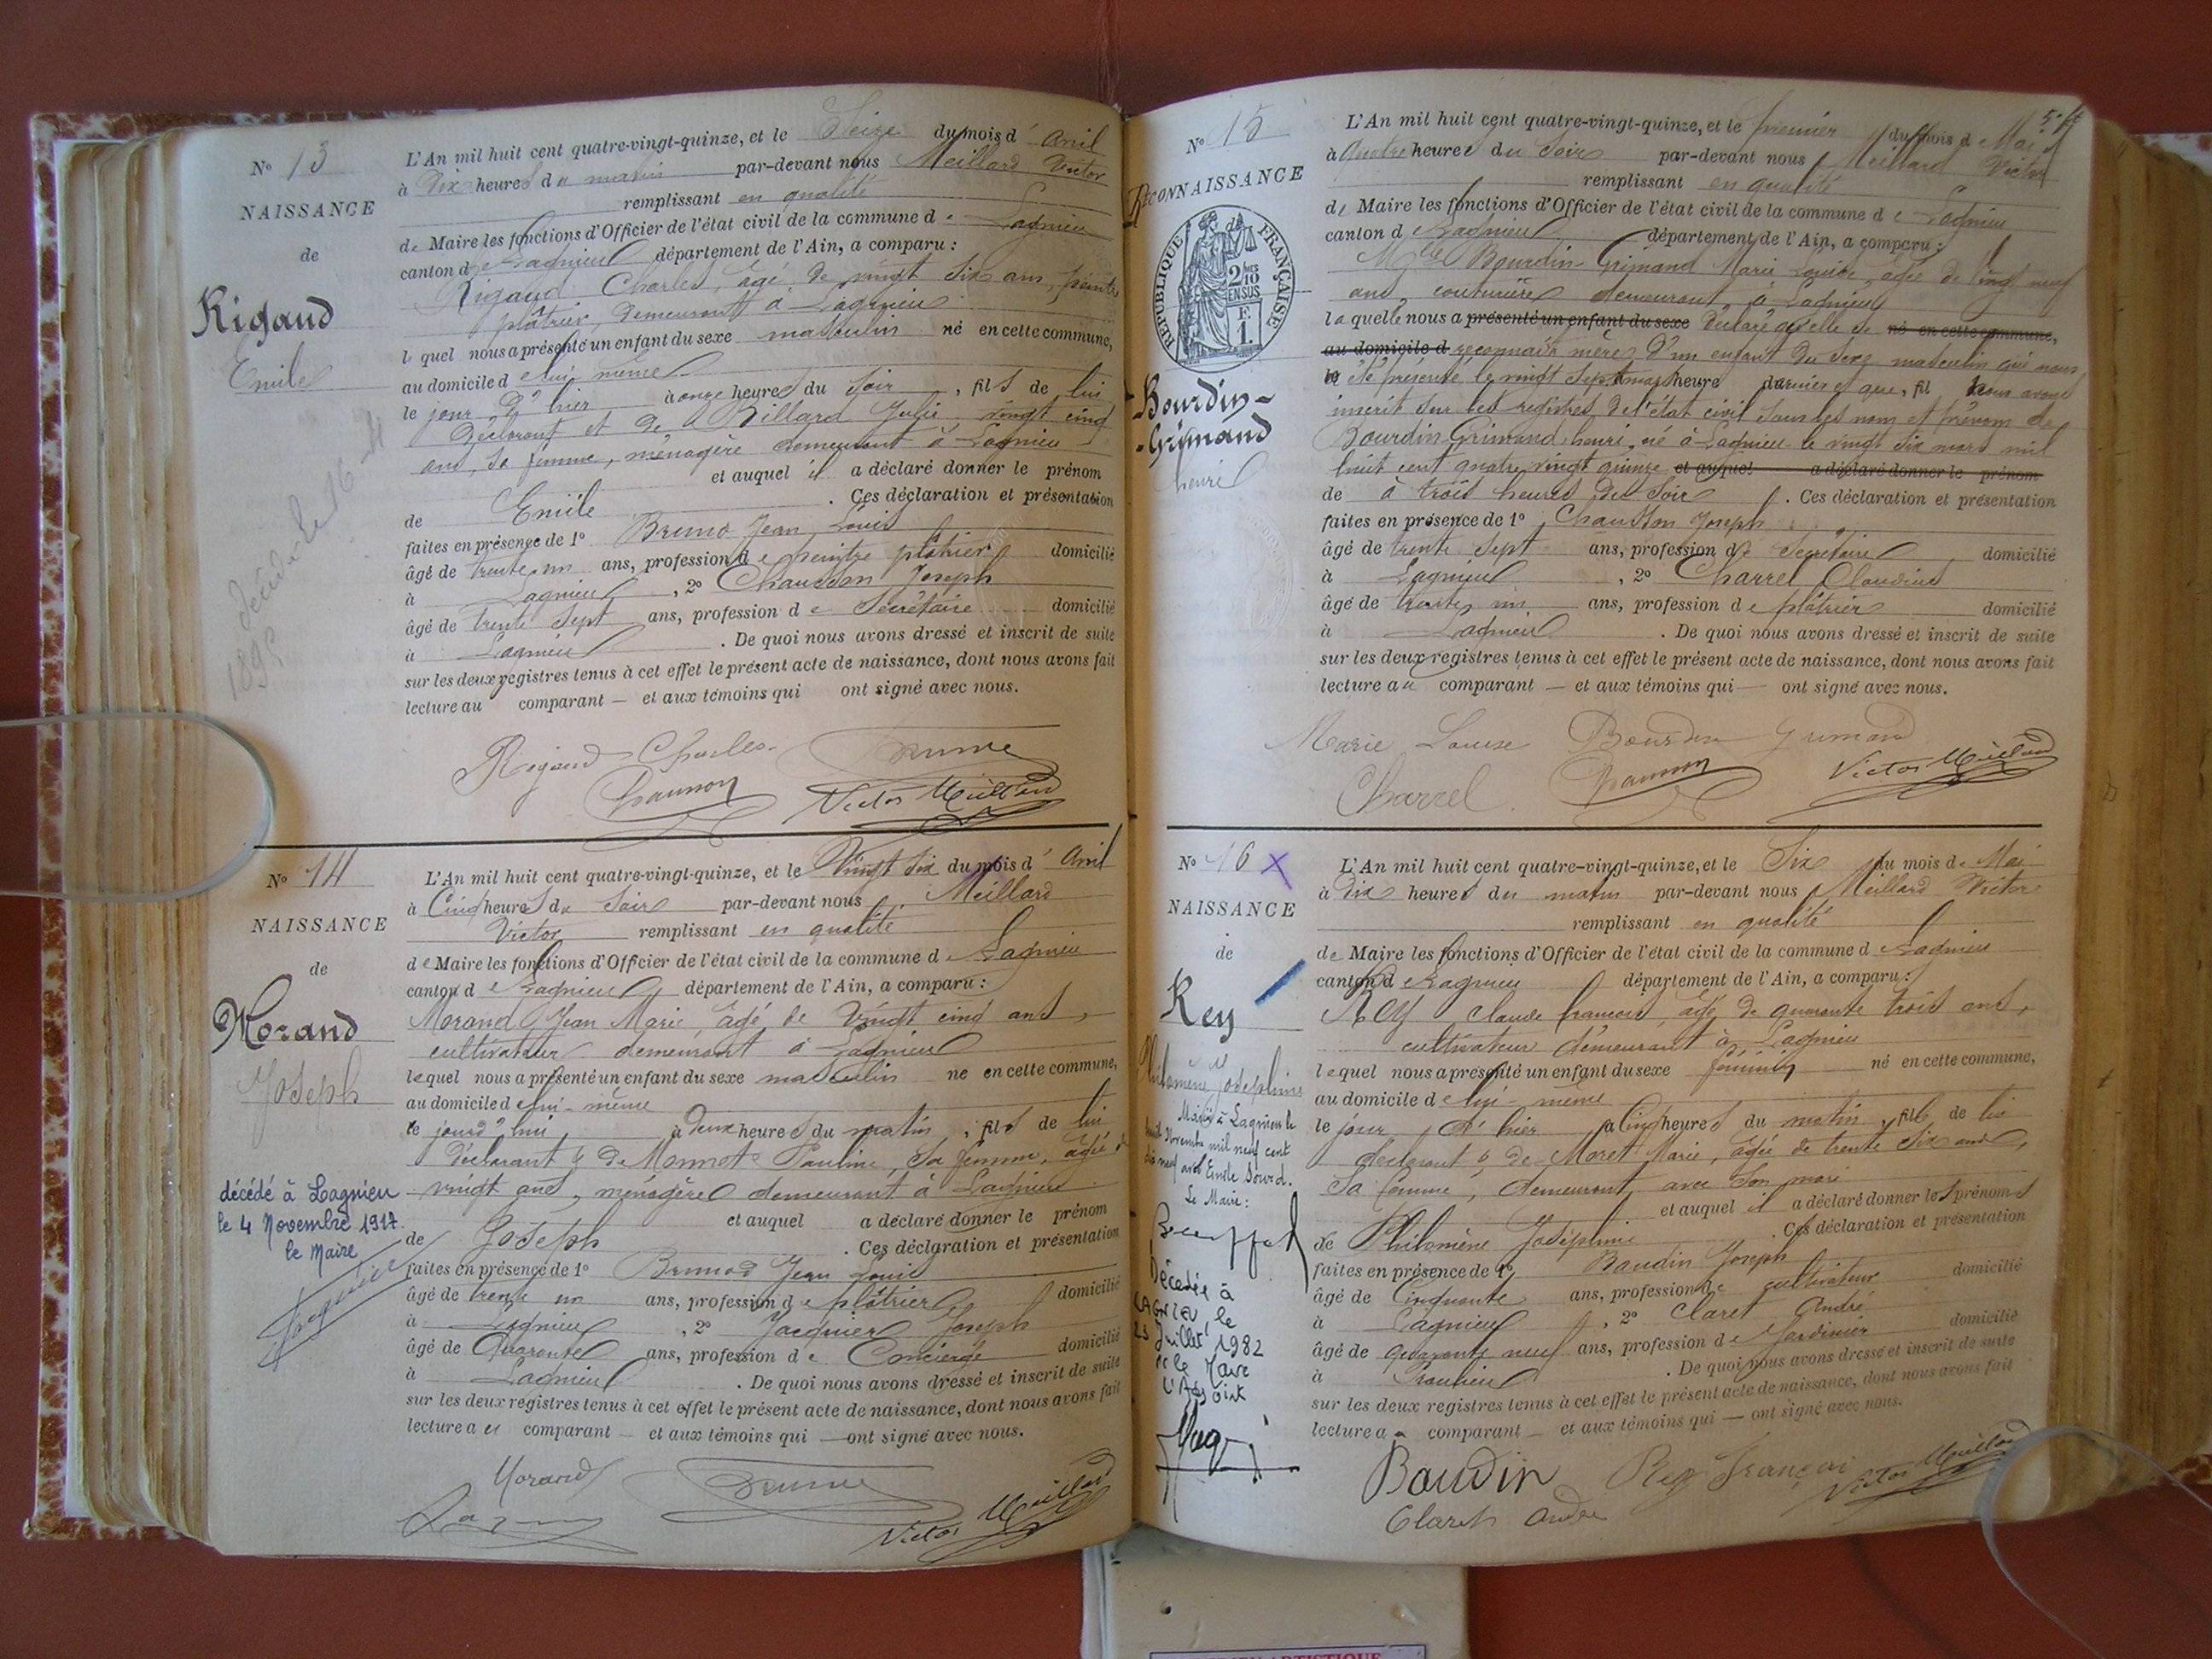 N° 13
NAISSANCE
de
Rigaud
Emile
décédé le 16
1895
L'An mil huit cent quatre-vingt-quinze, et le Seize du mois d' avril
à Dix heures du matin par-devant nous Meillard Victor
remplissant en qualité
de Maire les fonctions d'Officier de l'état civil de la commune de Lagnieu
canton de Lagnieu département de l'Ain, a comparu :
Rigaud Charles, âgé de vingt six ans, peintre
plâtrier, demeurant à Lagnieu
lequel nous a présenté un enfant du sexe masculin né en cette commune,
au domicile de lui même
le jour d'hier à onze heures du soir, fils de lui
déclarant et de Billard Julie vingt cinq
ans, sa femme, ménagère demeurant à Lagnieu
et auquel il a déclaré donner le prénom
de Emile. Ces déclaration et présentation
faites en présence de 1° Brunod Jean Louis
âgé de trente un ans, profession de peintre plâtrier domicilié
à Lagnieu, 2° Chausson Joseph
âgé de trente sept ans, profession de Secrétaire domicilié
à Lagnieu. De quoi nous avons dressé et inscrit de suite
sur les deux registres tenus à cet effet le présent acte de naissance, dont nous avons fait
lecture au comparant — et aux témoins qui ont signé avec nous.
Rigaud Charles
Chausson Victor Meillard
N° 14
NAISSANCE
de
Morand
Joseph
décédé à Lagnieu
le 4 Novembre 1917.
le Maire
L'An mil huit cent quatre-vingt-quinze, et le Vingt six du mois d' avril
à Cinq heures du soir par-devant nous Meillard
Victor remplissant en qualité
de Maire les fonctions d'Officier de l'état civil de la commune de Lagnieu
canton de Lagnieu département de l'Ain, a comparu :
Morand Jean Marie, âgé de vingt cinq ans,
cultivateur demeurant à Lagnieu
lequel nous a présenté un enfant du sexe masculin né en cette commune,
au domicile de lui-même
le jour d'hui à Deux heures du matin, fils de lui
déclarant & de Monnet Pauline, sa femme, âgée de
vingt ans, ménagère demeurant à Lagnieu
et auquel a déclaré donner le prénom
de Joseph. Ces déclaration et présentation
faites en présence de 1° Brunod Jean Louis
âgé de trente un ans, profession de plâtrier domicilié
à Lagnieu, 2° Jacquier Joseph
âgé de Quarante ans, profession de Concierge domicilié
à Lagnieu. De quoi nous avons dressé et inscrit de suite
sur les deux registres tenus à cet effet le présent acte de naissance, dont nous avons fait
lecture au comparant — et aux témoins qui — ont signé avec nous.
Morand
Victor Meillard
N° 15
RECONNAISSANCE
de
RÉPUBLIQUE FRANÇAISE
2/10 EN SUS
F. 1.
Bourdin-
-Grimand
henri
L'An mil huit cent quatre-vingt-quinze, et le premier du mois de Mai
à Quatre heures du soir par-devant nous Meillard Victor
remplissant en qualité
de Maire les fonctions d'Officier de l'état civil de la commune de Lagnieu
canton de Lagnieu département de l'Ain, a comparu :
Mlle Bourdin-Grimand Marie Louise, âgée de vingt neuf
ans, couturière demeurant à Lagnieu
laquelle nous a présenté un enfant du sexe déclaré qu'elle se né en cette commune,
au domicile d reconnait mère d'un enfant du sexe masculin qui nous
a été présenté le vingt sept mars heure dernier et que, fil nous avons
inscrit sur les registres de l'état civil sous les nom et prénom de
Bourdin Grimand henri, né à Lagnieu le vingt six mars mil
huit cent quatre vingt quinze et auquel a déclaré donner le prénom
de à trois heures du soir. Ces déclaration et présentation
faites en présence de 1° Chausson Joseph
âgé de trente sept ans, profession de Secrétaire domicilié
à Lagnieu, 2° Charrel Claudius
âgé de trente un ans, profession de plâtrier domicilié
à Lagnieu. De quoi nous avons dressé et inscrit de suite
sur les deux registres tenus à cet effet le présent acte de naissance, dont nous avons fait
lecture au comparant — et aux témoins qui — ont signé avec nous.
Marie Louise Bourdin Grimand
Charrel Chausson Victor Meillard
N° 16 X
NAISSANCE
de
Rey
Philomène Joséphine
Mariée à Lagnieu le
huit Novembre mil neuf cent
dix neuf avec Emile Sourd.
Le Maire :
Décédée à
LAGNIEU, le
23 Juillet 1982
P. le Maire
L'Adjoint
L'An mil huit cent quatre-vingt-quinze, et le Six du mois de Mai
à Dix heures du matin par-devant nous Meillard Victor
remplissant en qualité
de Maire les fonctions d'Officier de l'état civil de la commune de Lagnieu
canton de Lagnieu département de l'Ain, a comparu :
Rey Claude François, âgé de quarante trois ans,
cultivateur demeurant à Lagnieu
lequel nous a présenté un enfant du sexe féminin né en cette commune,
au domicile de lui-même
le jour d'hier à Cinq heures du matin, fille de lui
déclarant & de Moret Marie, âgée de trente six ans,
sa femme, demeurant avec son mari
et auquel il a déclaré donner les prénoms
de Philomène Joséphine. Ces déclaration et présentation
faites en présence de 1° Baudin Joseph
âgé de Cinquante ans, profession de cultivateur domicilié
à Lagnieu, 2° Claret André
âgé de Quarante neuf ans, profession de Jardinier domicilié
à Lagnieu. De quoi nous avons dressé et inscrit de suite
sur les deux registres tenus à cet effet le présent acte de naissance, dont nous avons fait
lecture au comparant — et aux témoins qui — ont signé avec nous.
Baudin Rey François Victor Meillard
Claret André